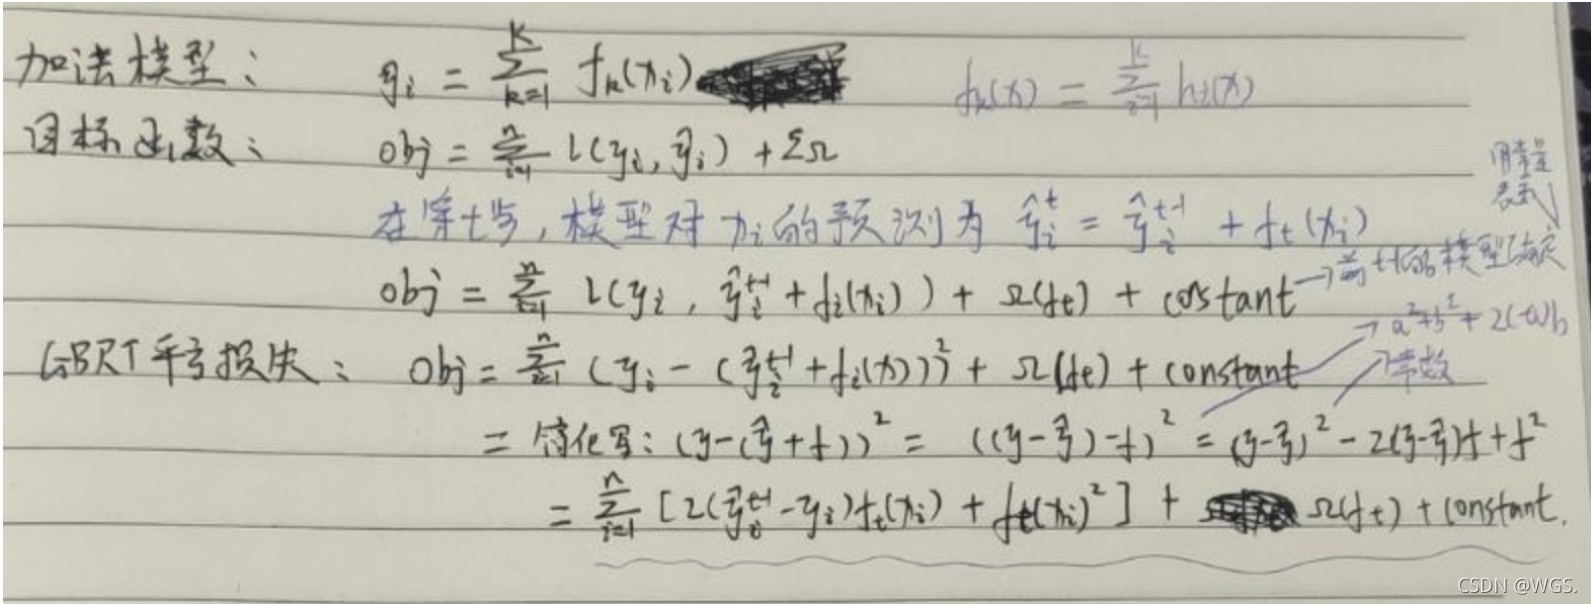 加法模型： ŷi = Σ_{k=1}^{K} fk(xi) fk(x) = Σ_{i=1}^{k} hi(x)
目标函数： obj = Σ_{i=1}^{n} l(yi, ŷi) + ΣΩ
用常量
表示
在第t步，模型对xi的预测为 ŷi^t = ŷi^{t-1} + ft(xi)
obj = Σ_{i=1}^{n} l(yi, ŷi^{t-1} + fi(xi)) + Ω(ft) + constant → 前t-1的模型确定
GBRT平方损失： obj = Σ_{i=1}^{n} (yi - (ŷi^{t-1} + fi(x)))² + Ω(ft) + constant
→ a²+b²+2(-a)b
→常数
= 简化写：(y-(ŷ+f))² = ((y-ŷ)-f)² = (y-ŷ)² - 2(y-ŷ)f + f²
= Σ_{i=1}^{n} [2(ŷi^{t-1} - yi)ft(xi) + ft(xi)²] + Ω(ft) + constant.
CSDN @WGS.